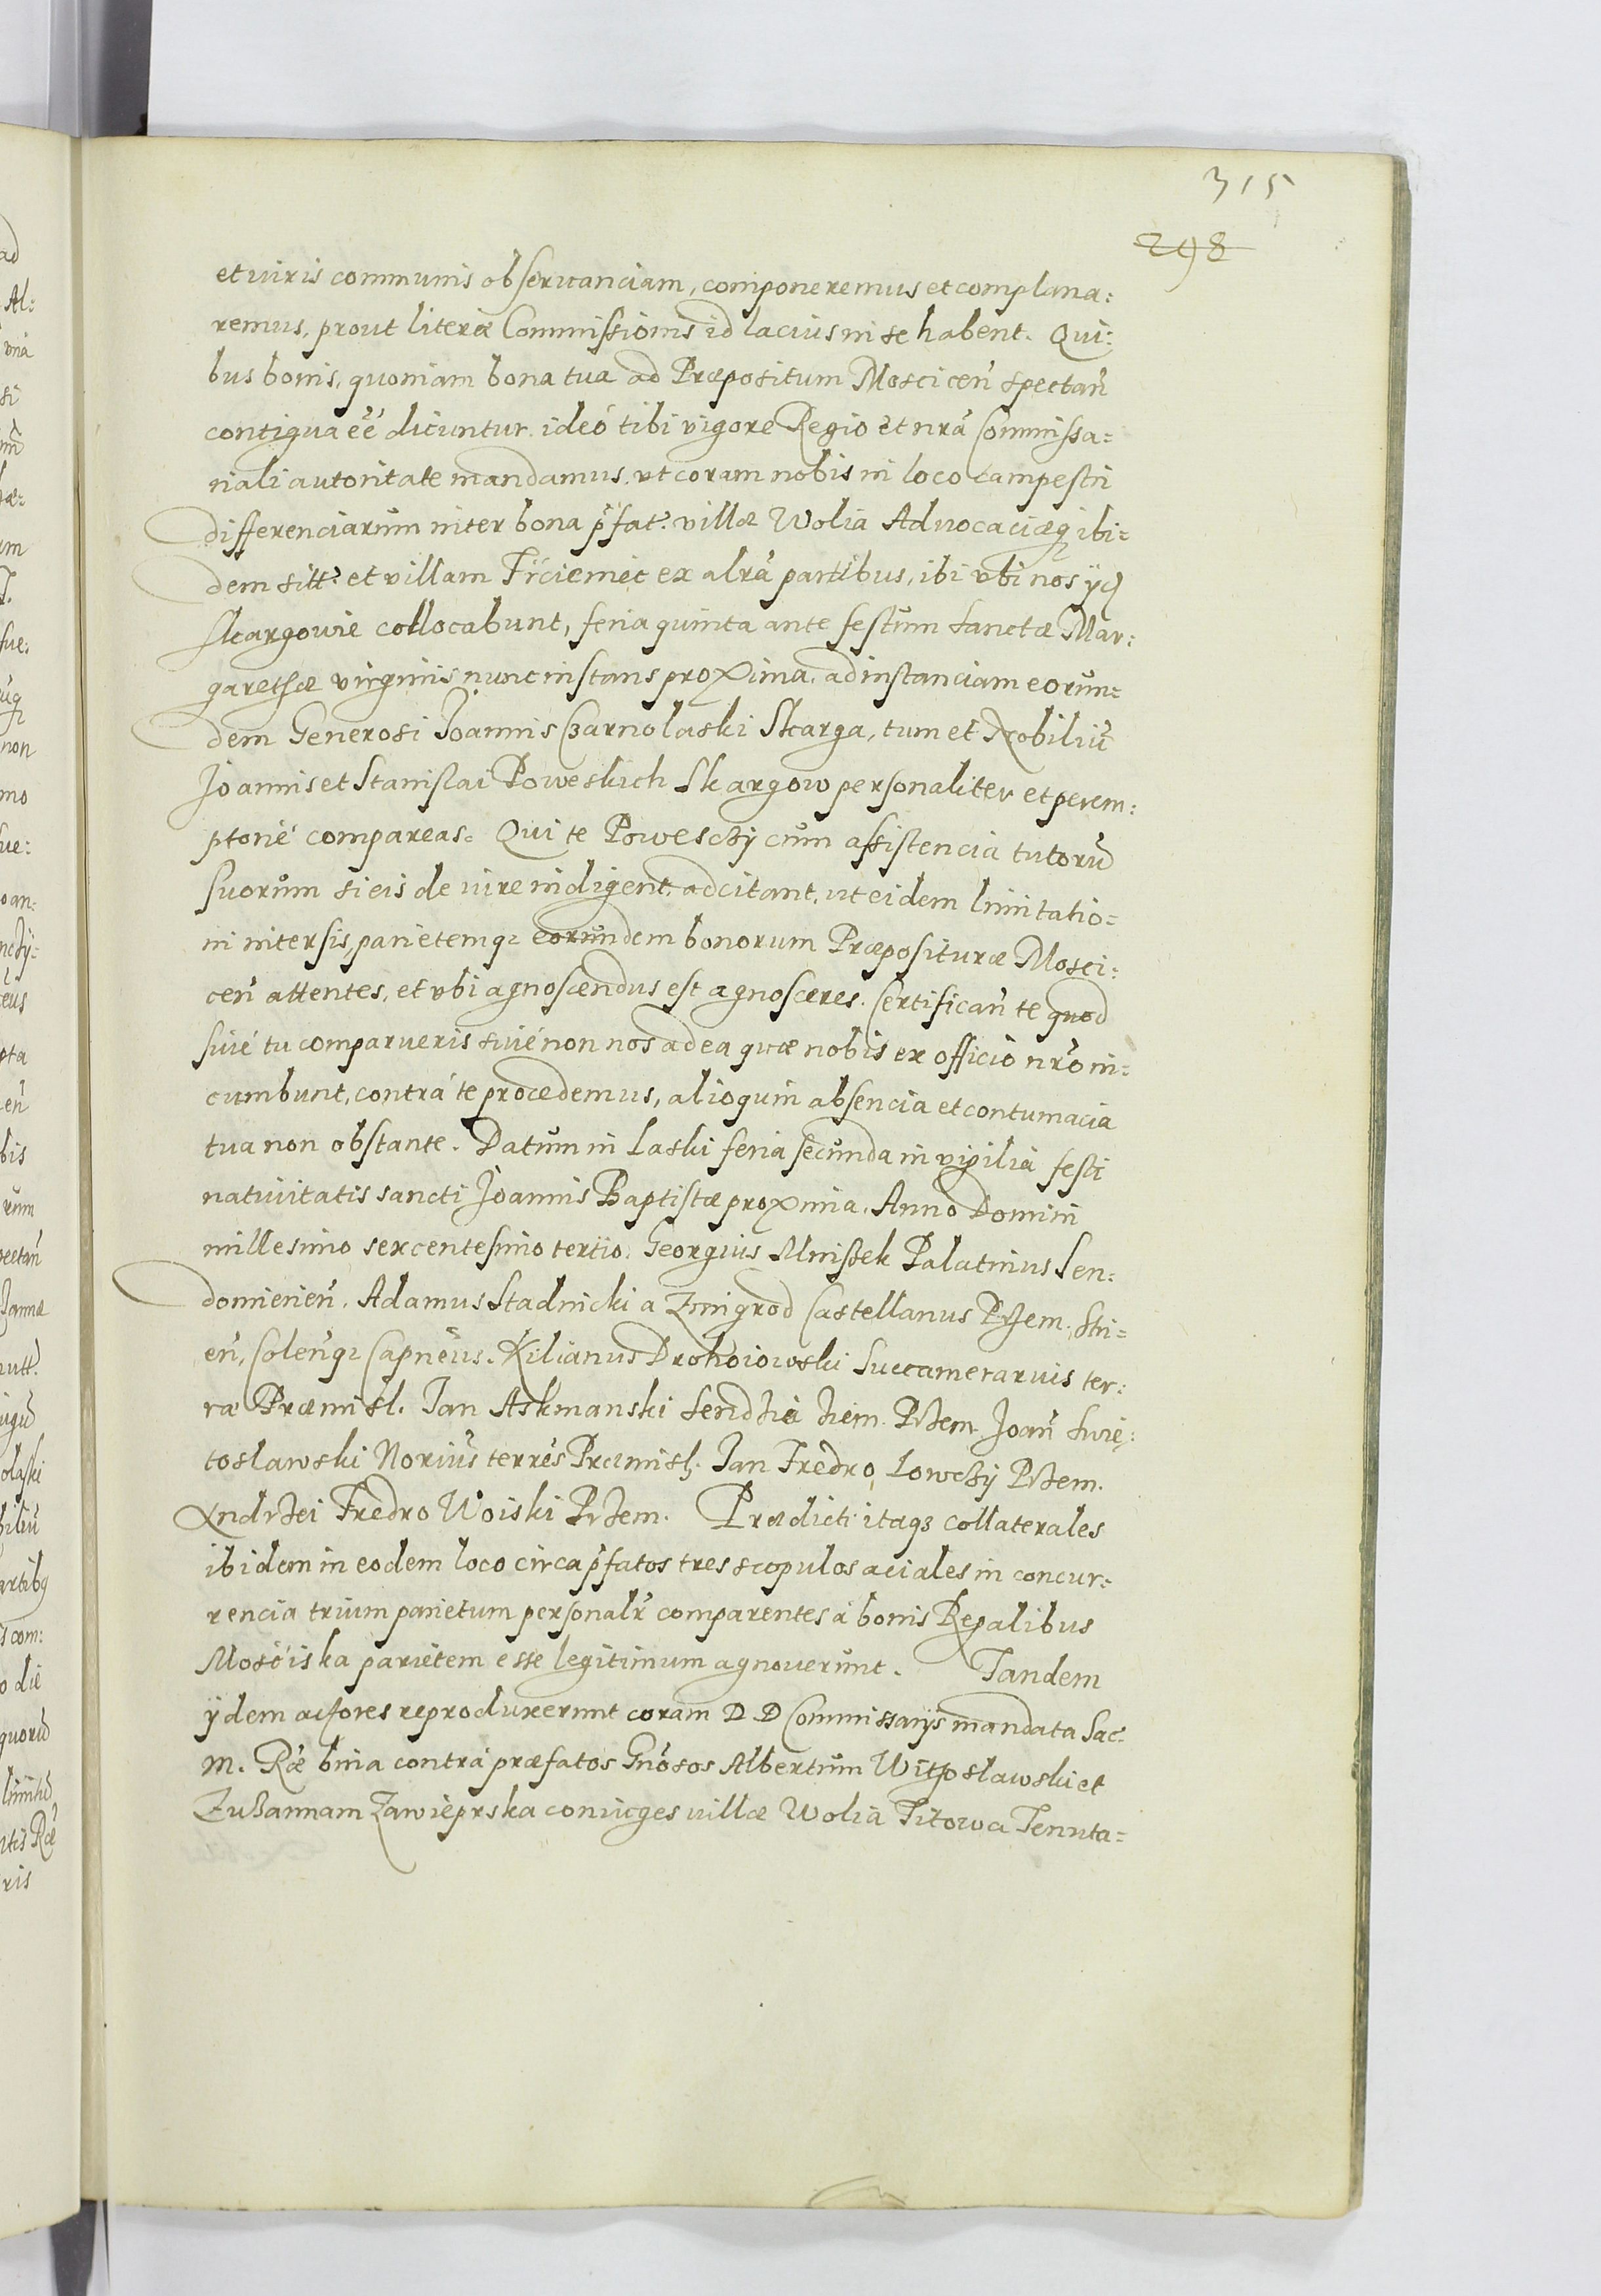 315
298
et iuris communis obseruanciam, componeremus et complana:
remus, prout literæ Commissionis id lacius in se habent. Qui:
bus bonis, quoniam bona tua ad Præpositum Moscicen̄ spectan̄
contigua eē dicuntur. ideó tibi vigore Regio et nrā Commissa=
riali autoritate mandamus, vt coram nobis in loco campestri
differenciarum inter bona p̄fat. villæ Wolia Aduocaciæq ibi=
dem sitt. et villam Trciemec ex alrā partibus, ibi vbi nos ijd
Skargowie collocabunt, feria quinta ante festum Sanctæ Mar:
garethæ virginis nunc instans proxima, ad instanciam eorun=
dem Generosi Joannis Czarnolaski Skarga, tum et Nobiliū
Joannis et Stanislai Poweskich Skargow personaliter et perem:
ptorié compareas. Qui te Poweschÿ cum assistencia tutorū
suorum si eis de iure indigent, adcitant, ut eidem limitatio=
ni intersis, parietemq eorundem bonorum Præposituræ Mosci:
cen̄ attentes, et vbi agnoscendus est agnosceres. Certifican̄ te quod
siué tu comparueris siué non nos ad ea quæ nobis ex officio nrō in=
cumbunt, contrá te procedemus, alioquin absencia et contumacia
tua non obstante. Datum in Laski feria secunda in vigilia festi
natiuitatis sancti Joannis Baptistæ proxima. Anno Domini
millesimo sexcentesimo tertio. Georgius Mniszek Palatinus Sen:
domirien̄. Adamus Stadnicki a Zmigrod Castellanus Przem. Stri=
en̄, Colen̄q Capnēus. Kilianus Drohoiowski Succamerarius ter:
ræ Præmisl. Jan Askmanski Sendzia Ziem. Przem. Joan̄ Swię:
toslawski Norius terrēs Præmisl. Jan Fredro Lowczÿ Przem.
Andrzei Fredro Woiski Przem. Prædicti itaq3 collaterales
ibidem in eodem loco circa p̄fatos tres scopulos aciales in concur:
rencia trium parietum personalr̄ comparentes á bonis Regalibus
Mosciska parietem esse legitimum agnouerunt. Tandem
ÿdem actores reproduxerunt coram D D Commissarijs mandata Sac.
M. Rǣ bina contrá præfatos Gnōsos Albertum Witoslawski et
Zuzannam Zawieprska coniuges villæ Wolia Titowa Tenuta=